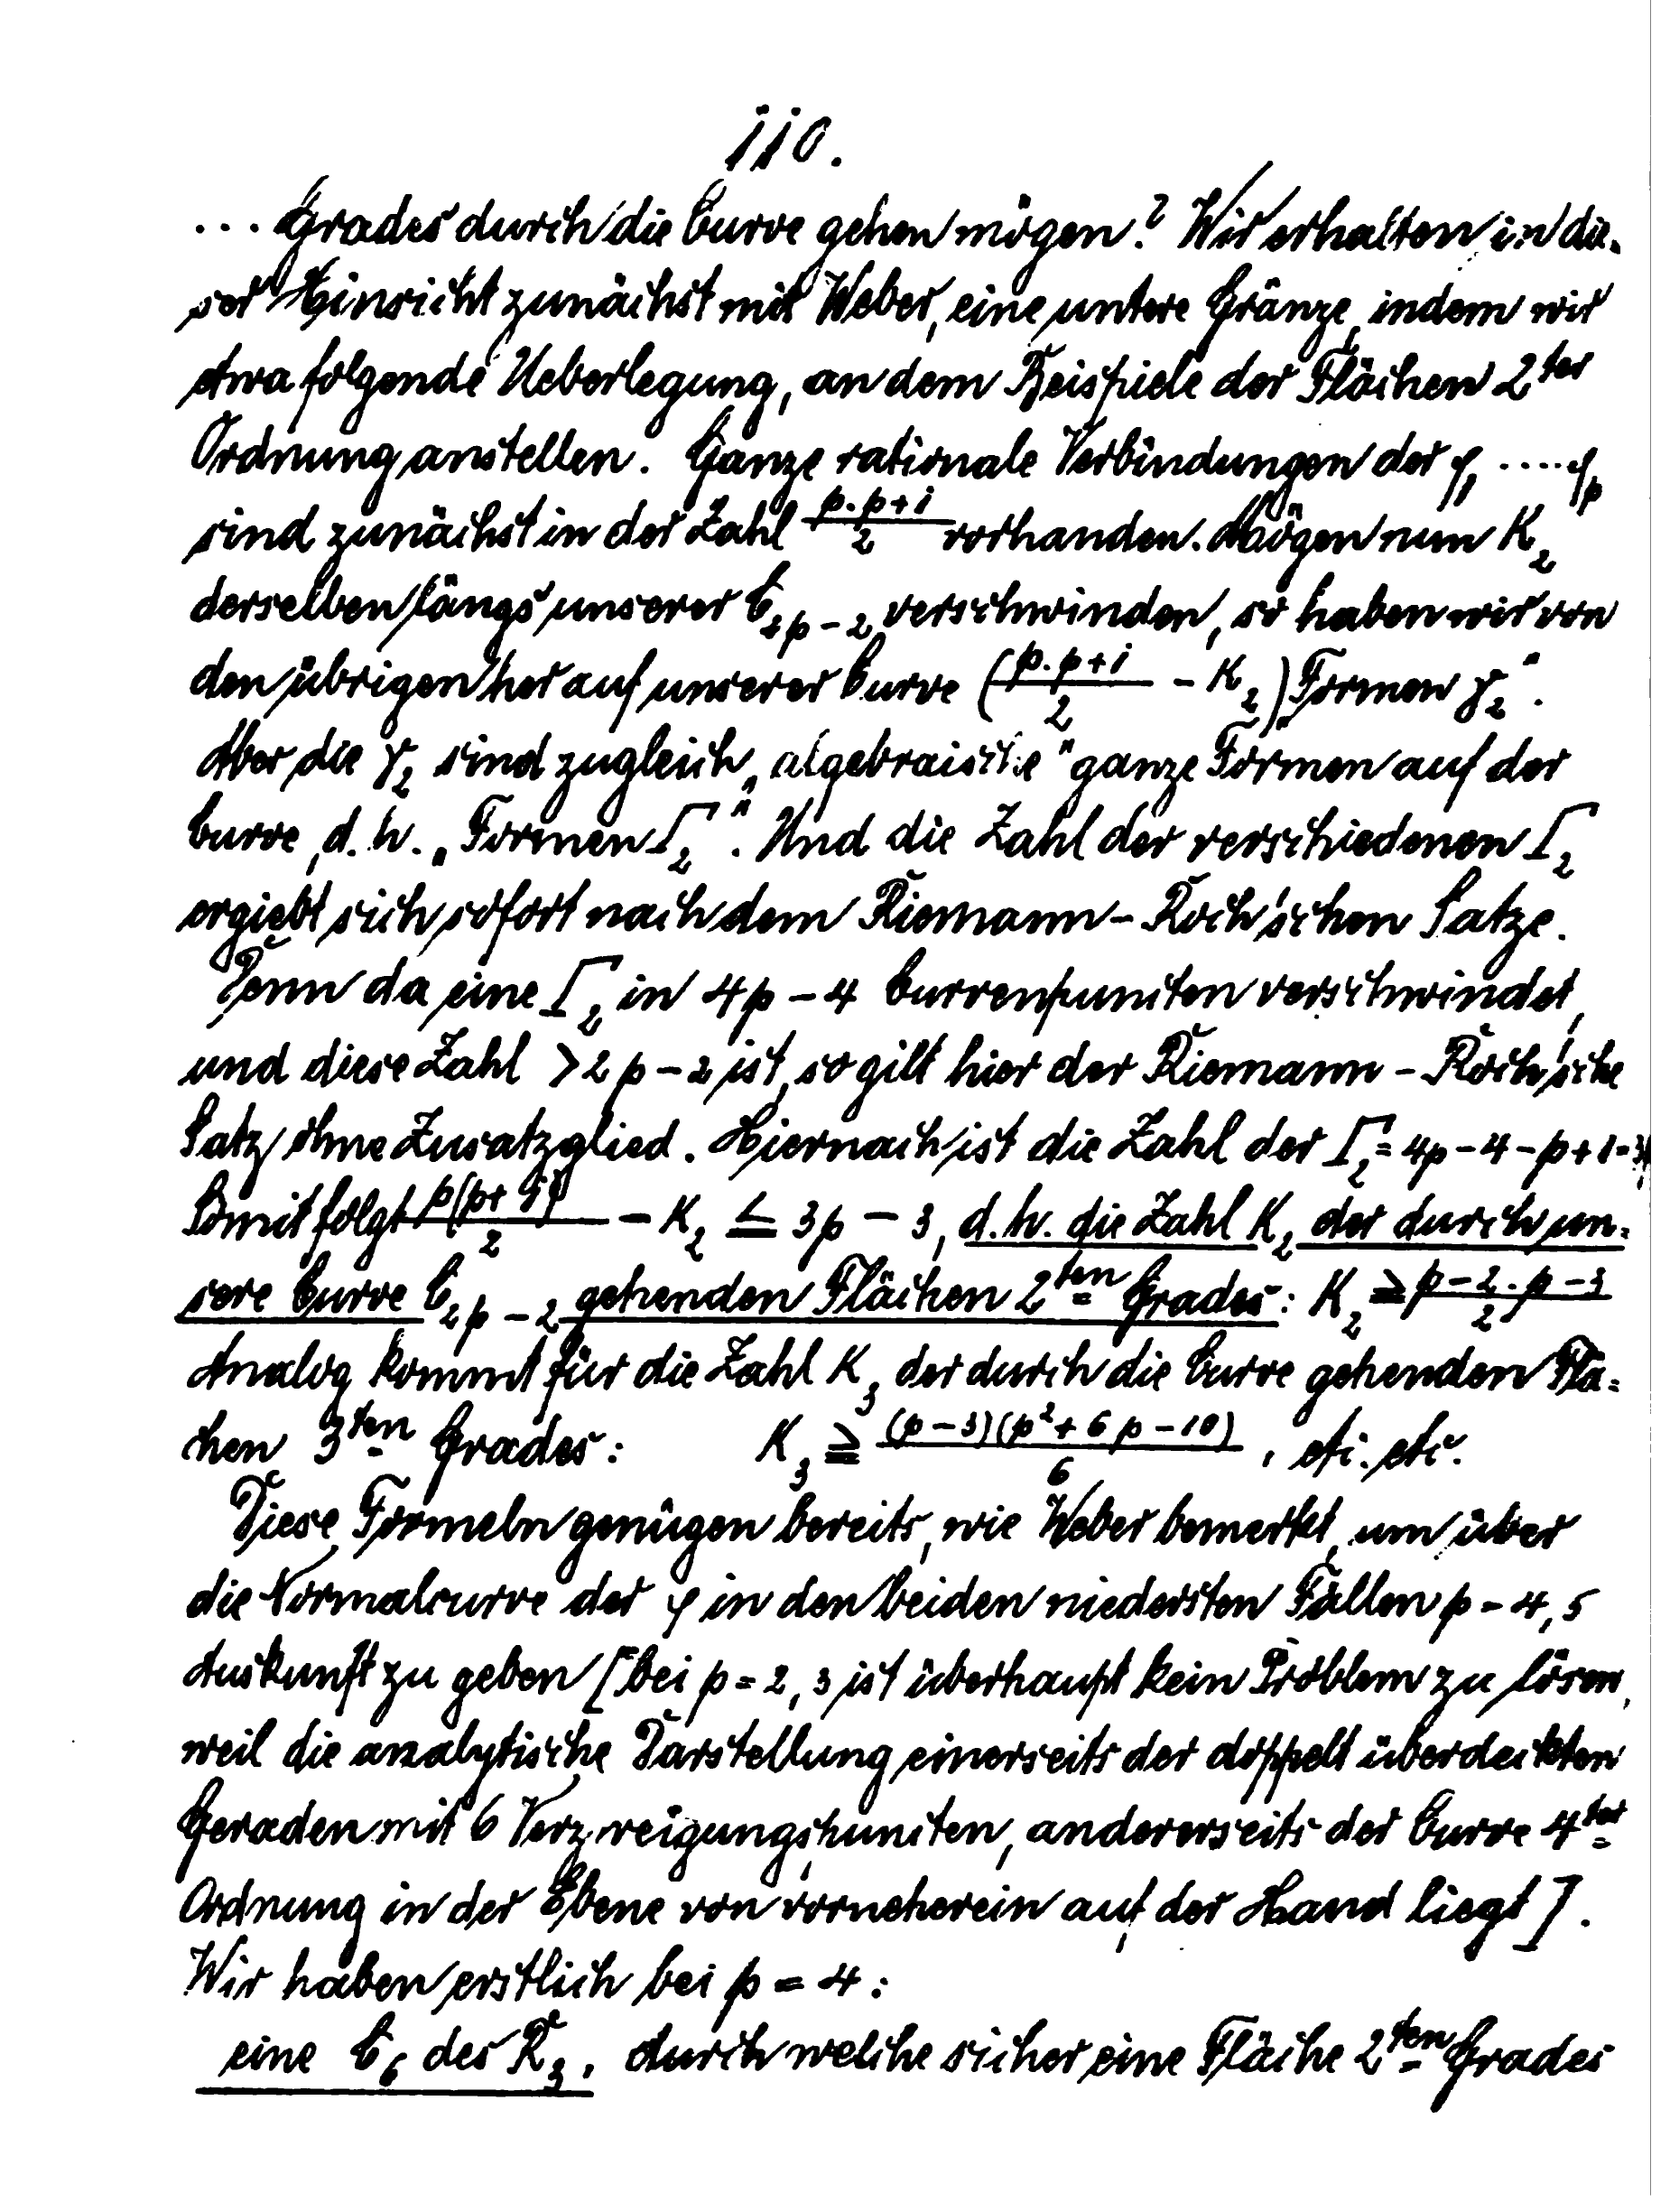 110.
... Grades durch die Curve gehen mögen? Wir erhalten in die-
ser Hinsicht zunächst mit Weber, eine untere Gränze, indem wir
etwa folgende Ueberlegung, an dem Beispiele der Flächen 2ter
Ordnung anstellen. Ganze rationale Verbindungen der φ₁ .... φₚ
sind zunächst in der Zahl p.p+1/2 vorhanden. Mögen nun K₂
derselben längs unserer C₂ₚ₋₂ verschwinden, so haben wir von
den übrigen her auf unserer Curve (p.p+1/2 - K₂) Formen γ₂".
Aber die γ₂ sind zugleich „algebraische" ganze Formen auf der
Curve, d.h. „Formen Γ₂". Und die Zahl der verschiedenen Γ₂
ergiebt sich sofort nach dem Riemann-Roch'schen Satze.
Denn da eine Γ₂ in 4p-4 Curvenpuncten verschwindet,
und diese Zahl > 2p-2 ist, so gilt hier der Riemann-Roch'sche
Satz ohne Zusatzglied. Hiernach ist die Zahl der Γ₂ = 4p-4-p+1=3
Somit folgt p(p+1)/2 - K₂ ≤ 3p-3, d.h. die Zahl K₂ der durch un-
sere Curve C₂ₚ₋₂ gehenden Flächen 2ten Grades: K₂ ≥ p-2.p-3/2
Analog kommt für die Zahl K₃ der durch die Curve gehenden Flä-
chen 3ten Grades: K₃ ≥ (p-3)(p²+6p-10)/6, etc. etc.
Diese Formeln genügen bereits, wie Weber bemerkt, um über
die Normalcurve der φ in den beiden niedersten Fällen p=4,5
Auskunft zu geben [bei p=2,3 ist überhaupt kein Problem zu lösen,
weil die analytische Darstellung einerseits der doppelt überdeckten
Geraden mit 6 Verzweigungspuncten, andererseits der Curve 4ter
Ordnung in der Ebene von vorneherein auf der Hand liegt].
Wir haben erstlich bei p=4:
eine C₆ des R₃, durch welche sicher eine Fläche 2ten Grades